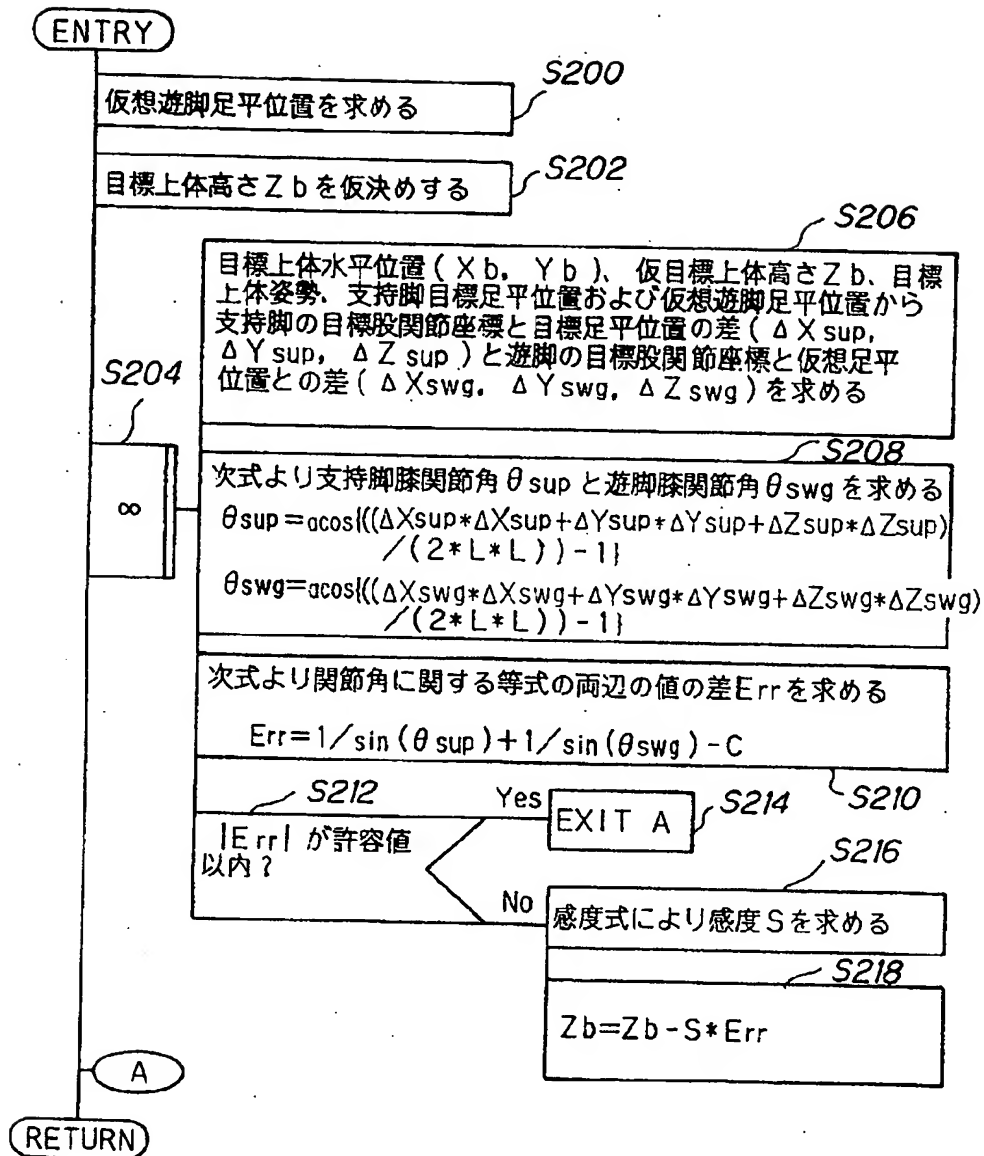 ENTRY
S200
仮想遊脚足平位置を求める
S202
目標上体高さZbを仮決めする
S206
目標上体水平位置(Xb. Yb)、仮目標上体高さZb、目標
上体姿勢、支持脚目標足平位置および仮想遊脚足平位置から
支持脚の目標股関節座標と目標足平位置の差(ΔXsup,
ΔYsup, ΔZsup)と遊脚の目標股関節座標と仮想足平
位置との差(ΔXswg, ΔYswg, ΔZswg)を求める
S204
∞
S208
次式より支持脚膝関節角θsupと遊脚膝関節角θswgを求める
θsup=acos{((ΔXsup*ΔXsup+ΔYsup*ΔYsup+ΔZsup*ΔZsup)
/(2*L*L))-1}
θswg=acos{((ΔXswg*ΔXswg+ΔYswg*ΔYswg+ΔZswg*ΔZswg)
/(2*L*L))-1}
次式より関節角に関する等式の両辺の値の差Errを求める
Err=1/sin(θsup)+1/sin(θswg)-C
S210
S212
|Err|が許容値
以内?
Yes
EXIT A
S214
No
S216
感度式により感度Sを求める
S218
Zb=Zb-S*Err
A
RETURN